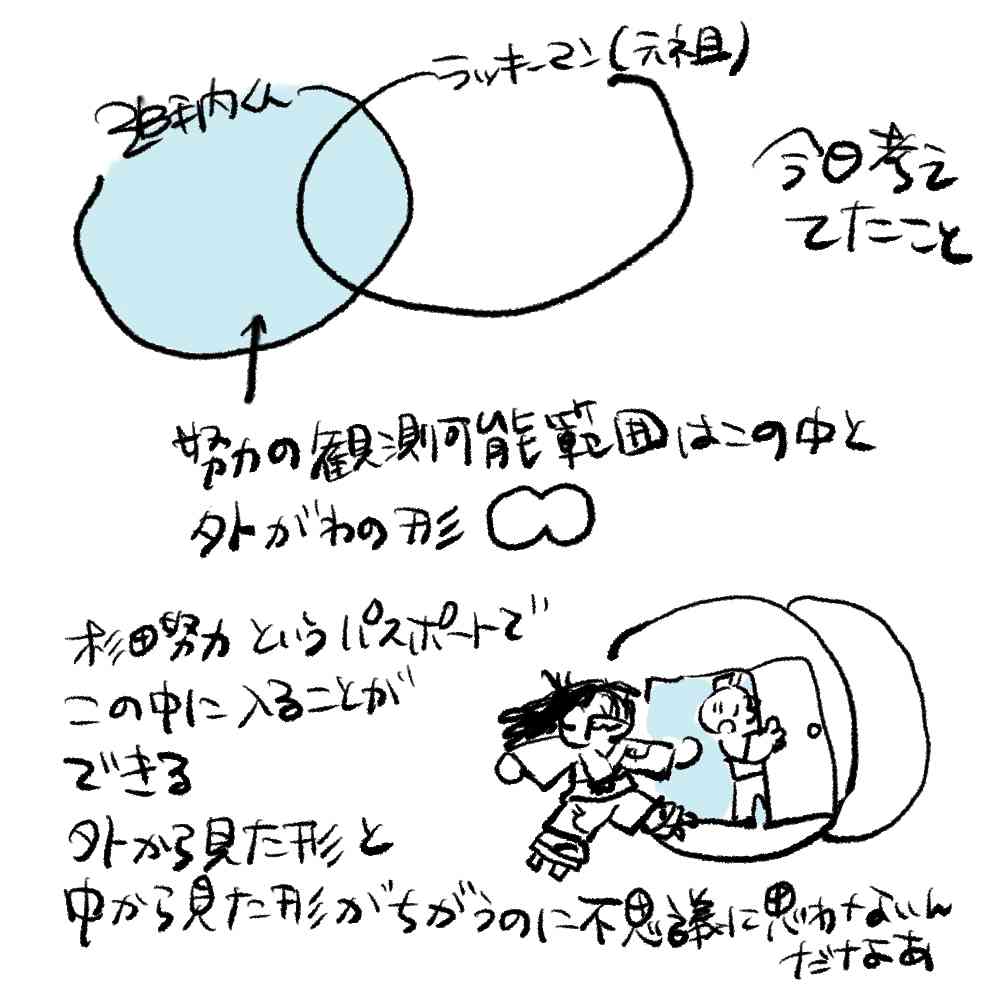 追手内くん
ラッキーマン(元祖)
今日考え
てたこと
努力の観測可能範囲はこの中と
外がわの形
杉田努力というパスポートで
この中に入ることが
できる
外から見た形と
中から見た形がちがうのに不思議に思わないん
だなあ